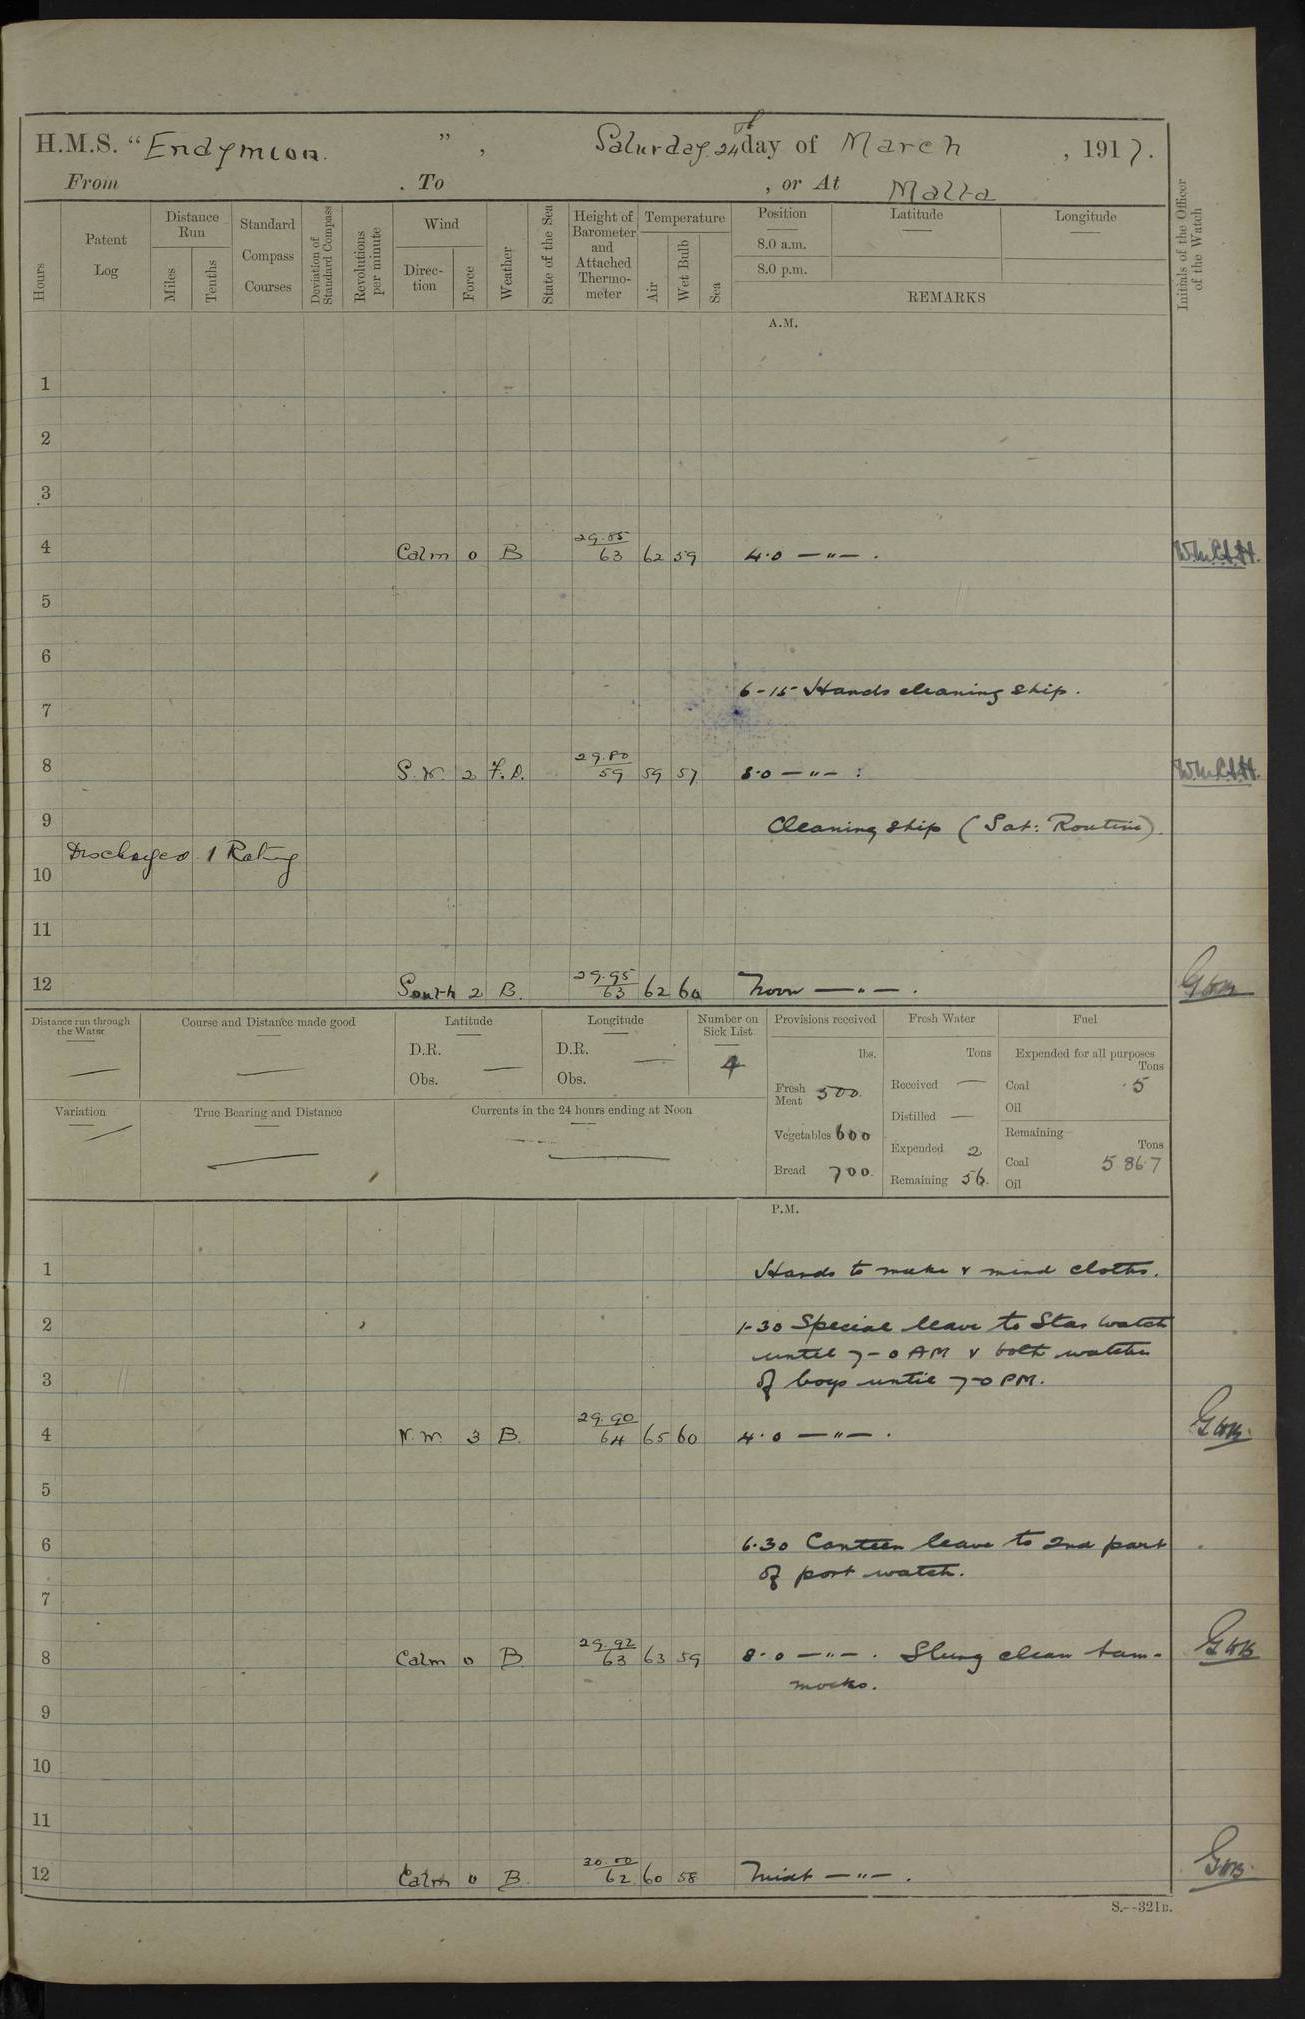 H.M.S. “Endymion. ” , Saturday 24th day of March , 1917.
From . To , or At Malta
Hours
Patent Log
Distance Run
Miles
Tenths
Standard Compass Courses
Deviation of Standard Compass
Revolutions per minute
Wind
Direction
Force
Weather
State of the Sea
Height of Barometer and Attached Thermometer
Temperature
Air
Wet Bulb
Sea
Position
8.0 a.m.
8.0 p.m.
Latitude
Longitude
REMARKS
Initials of the Officer of the Watch
A.M.
1
2
3
4 Calm 0 B 29.85 63 62 59 4.0 — " — .
5
6
6-15 Hands cleaning ship.
7
8 S.W. 2 F.D. 29.80 59 59 57 8.0 — " — :
9 Cleaning ship (Sat: Routine).
Discharged 1 Rating
10
11
12 South 2 B. 29.95 63 62 60 Noon — " — .
Distance run through the Water
Course and Distance made good
Latitude
D.R.
Obs.
Longitude
D.R.
Obs.
Number on Sick List
4
Provisions received
lbs.
Fresh Meat 500.
Vegetables 600
Bread 700.
Fresh Water
Tons
Received —
Distilled —
Expended 2
Remaining 56.
Fuel
Expended for all purposes
Tons
Coal 5
Oil
Remaining
Tons
Coal 586.7
Oil
Variation
True Bearing and Distance
Currents in the 24 hours ending at Noon
P.M.
1 Hands to make & mend cloths.
2 1-30 Special leave to Star watch
until 7-0 AM & both watches
3 of boys until 7-0 PM.
4 N.W. 3 B. 29.90 64 65 60 4.0 — " — .
5
6 6.30 Canteen leave to 2nd part
of port watch.
7
8 Calm 0 B 29.92 63 63 59 8.0 — " — . Slung clean ham-
mocks.
9
10
11
12 Calm 0 B. 30.00 62 60 58 Midt — " — .
S.—321B.